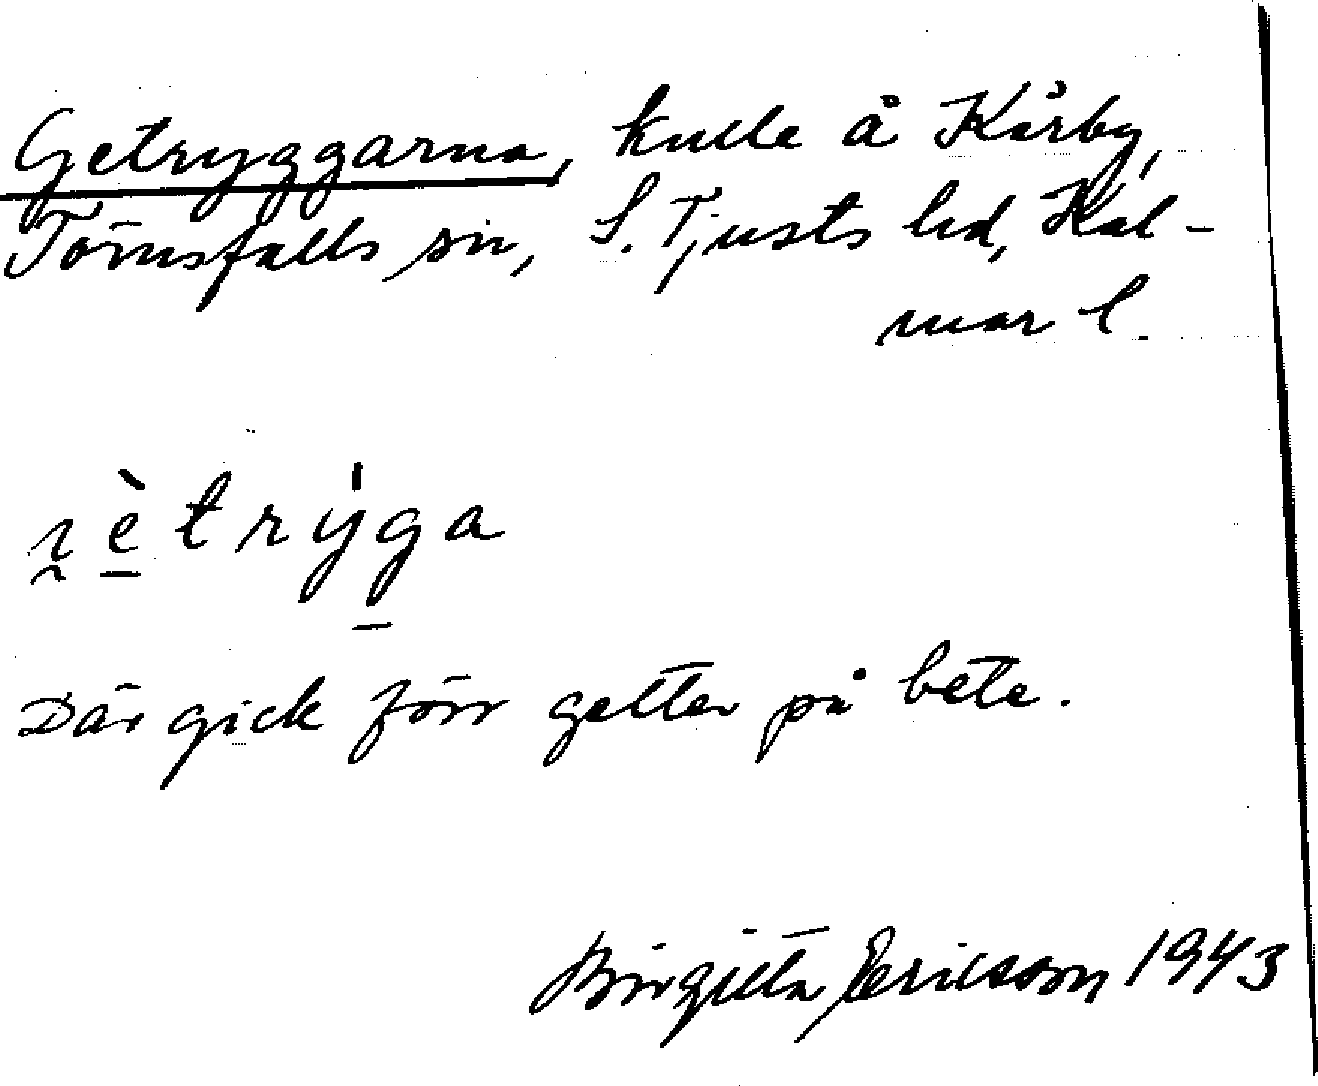 Getryggarna, kulle å Kårby,
Törnsfalls sn, S. Tjusts hd, Kal-
mar l.
Där gick förr getter på bete.
Birgitta Ericsson 1943